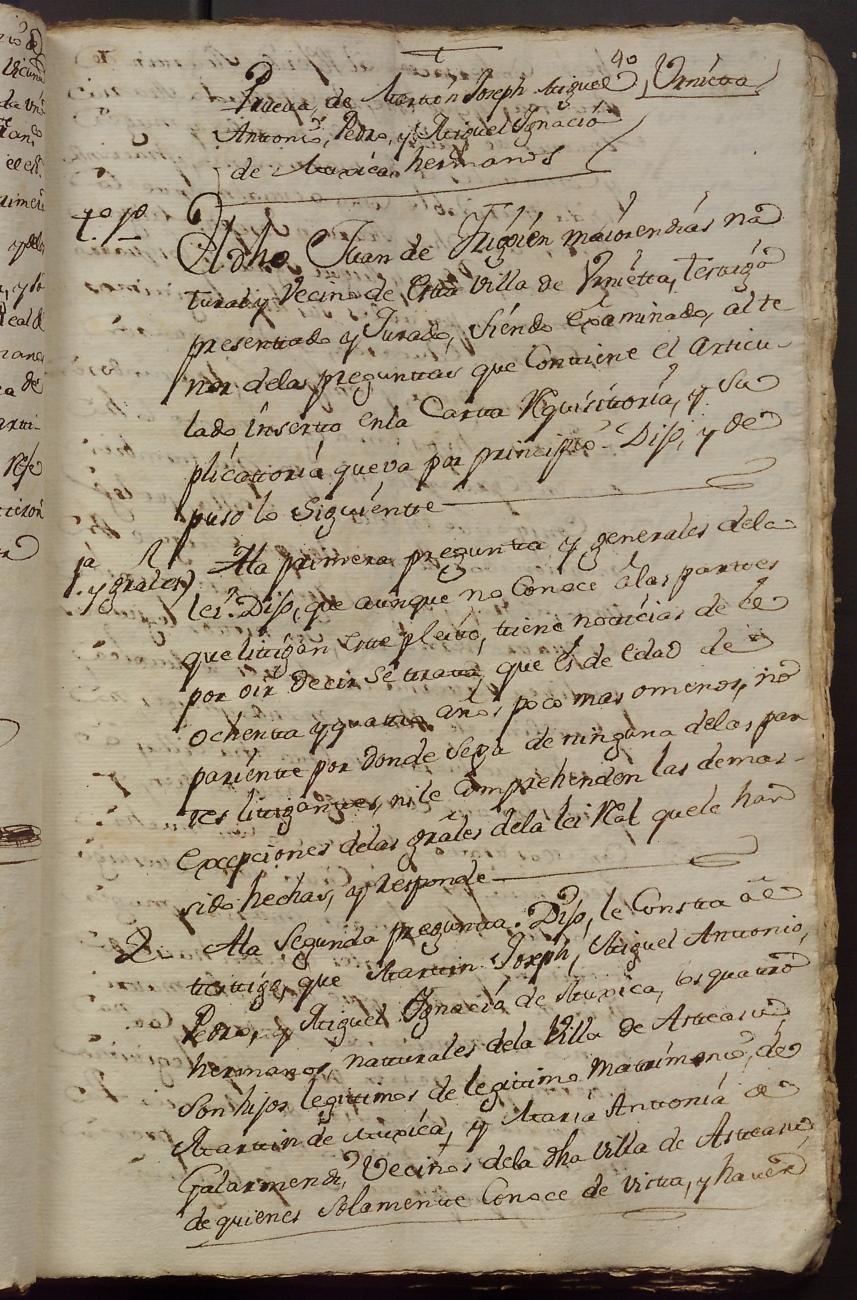 40
Prueva de Martin Joseph Miguel Urnieta
Antonio, Pedro, y Miguel Ignacio
de Muxica hermanos
t.º 1.º
El dho Juan de Irigoien maior en dias na
tural y Vecino de Esta Villa de Urnieta, testigo
presentado y Jurado, siendo Examinado, al te
nor delas preguntas que Contiene el Articu-
lado inserto enla Carta Requisitoria, y Su
plicattoria que va por principio Dijo, y de
puso lo Siguiente
1.ª y grales
Ala primera pregunta y generales dela
lei: Dijo, que aunque no Conoce álas partes
que litigan este pleito, tiene noticias de él
por oir decir se trata, que es de edad de
ochenta y quatro años poco mas omenos, no
pariente por donde sepa de ninguna delas par
tes litigantes, nile Comprehenden las demas
Excepciones delas grales dela lei Real quele han
sido hechas, y responde
2. Ala Segunda pregunta. Dijo, le Consta al
testigo, que Martin Joseph, Miguel Antonio,
Pedro, y Miguel Ignacio de Muxica, los quatro
hermanos, naturales dela Villa de Asteasu,
son hijos legittimos de legitimo Matrimonio, de
Martin de Muxica, y Maria Antonia de
Galarmendi, Vecinos dela dha Villa de Asteasu,
de quienes Solamente Conoce de vista, y haver